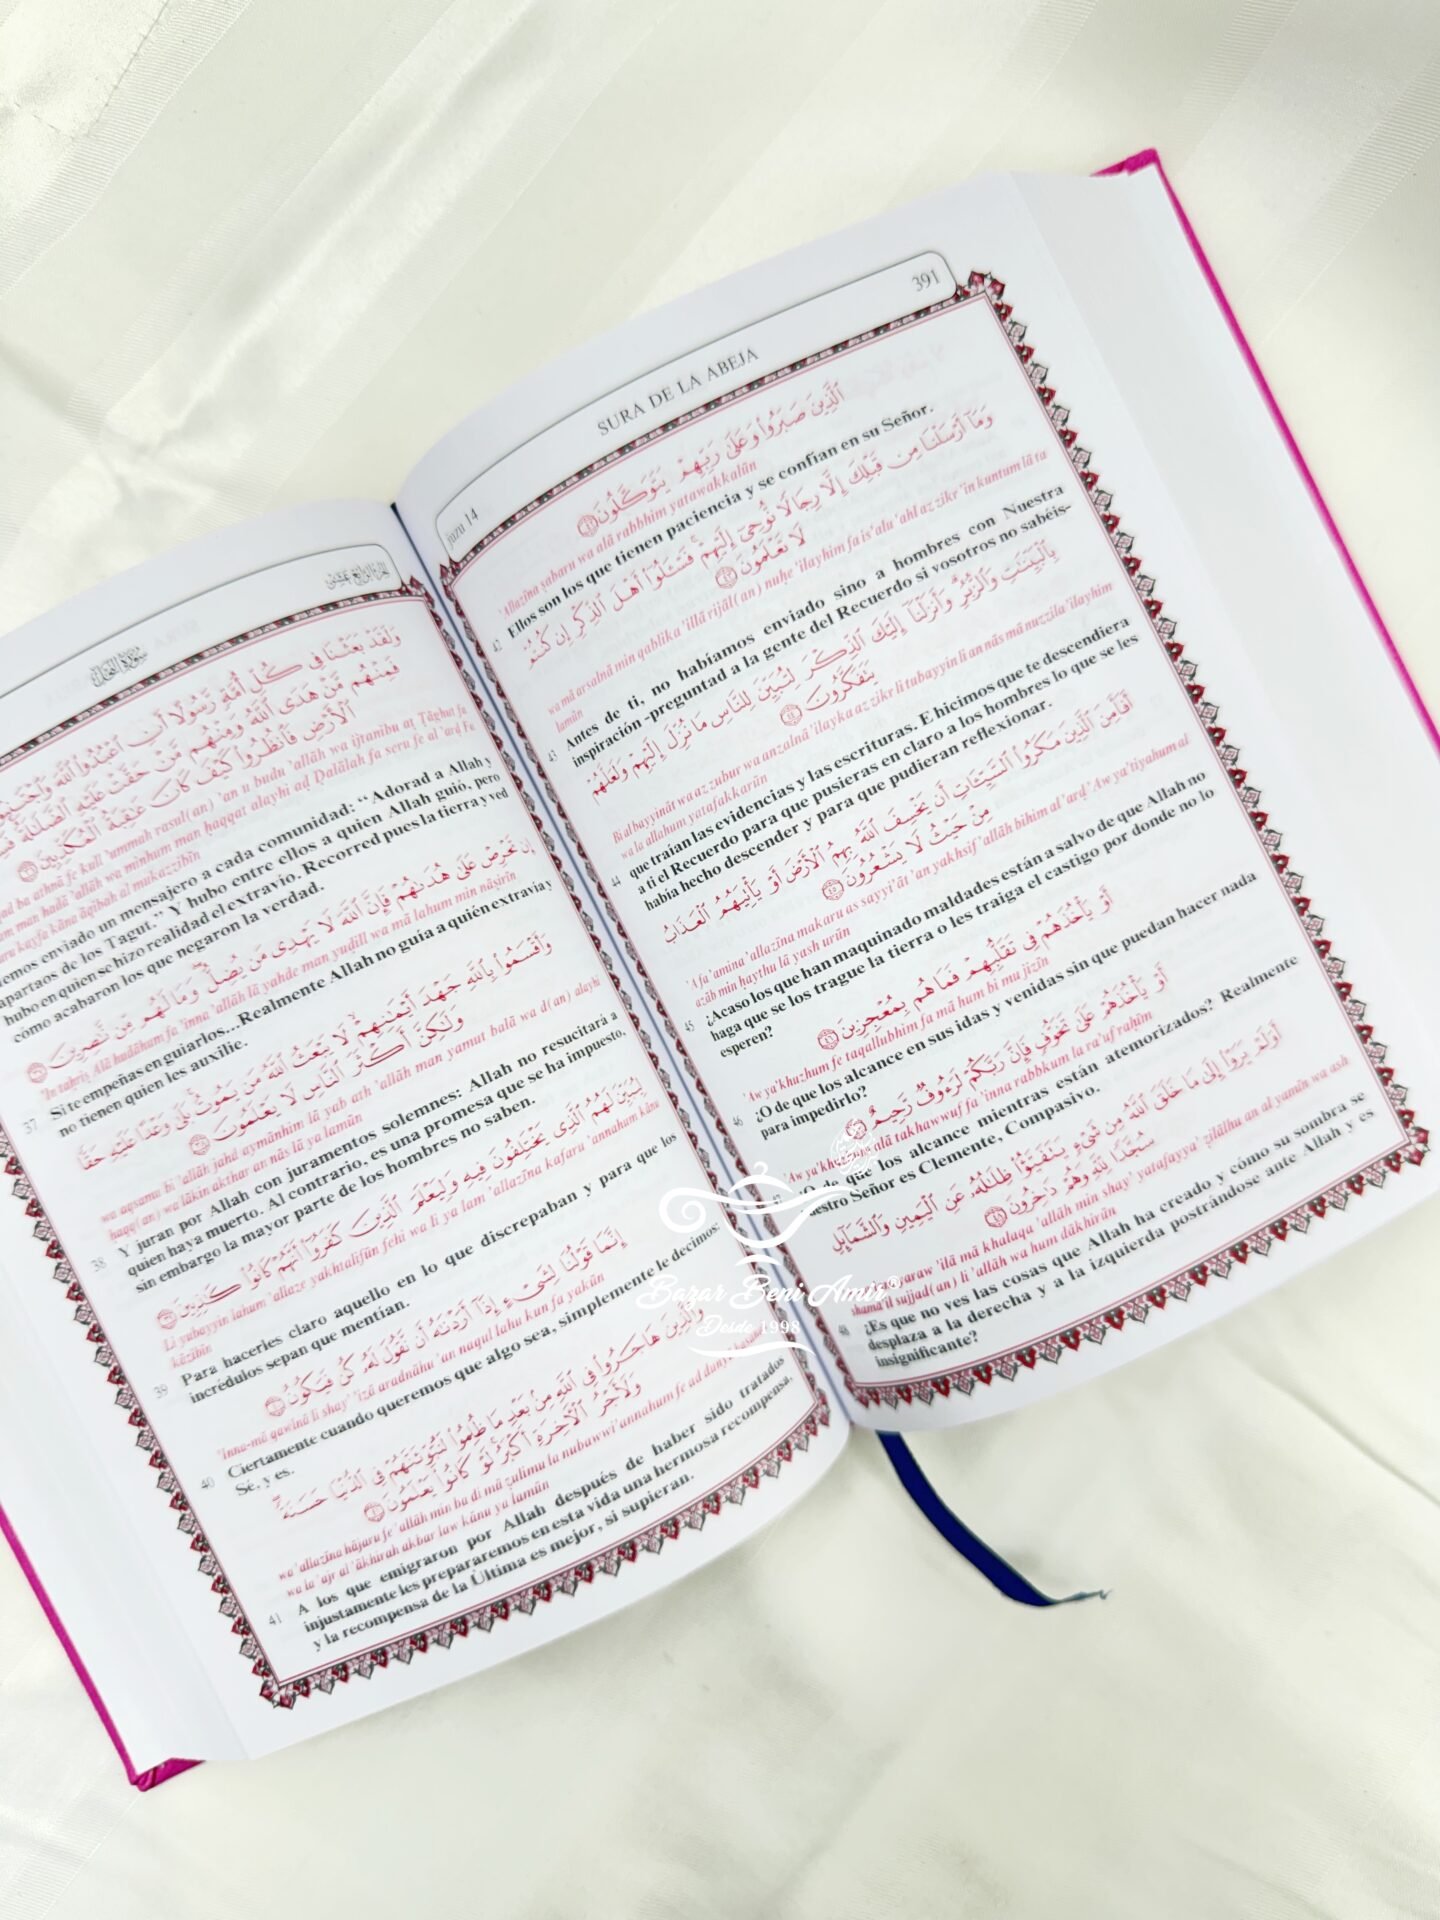 الجزء الرابع عشر
سورة النحل
وَلَقَدْ بَعَثْنَا فِى كُلِّ أُمَّةٍ رَّسُولًا أَنِ ٱعْبُدُوا۟ ٱللَّهَ
فَمِنْهُم مَّنْ هَدَى ٱللَّهُ وَمِنْهُم مَّنْ حَقَّتْ عَلَيْهِ ٱلضَّلَٰلَةُ
ٱلْأَرْضِ فَٱنظُرُوا۟ كَيْفَ كَانَ عَٰقِبَةُ ٱلْمُكَذِّبِينَ
ba athnā fe kull 'ummah rasul(an) 'an u budu 'allāh wa ijtanibu aṭ Ṭāghut fa
man hadā 'allāh wa minhum man ḥaqqat alayhi aḍ Ḍalālah fa seru fe al 'arḍ Fa
kayfa kāna āqibah al mukazzibīn
emos enviado un mensajero a cada comunidad: “ Adorad a Allah y
apartaos de los Tagut.” Y hubo entre ellos a quien Allah guió, pero
hubo en quien se hizo realidad el extravío. Recorred pues la tierra y ved
cómo acabaron los que negaron la verdad.
إِن تَحْرِصْ عَلَىٰ هُدَىٰهُمْ فَإِنَّ ٱللَّهَ لَا يَهْدِى مَن يُضِلُّ وَمَا لَهُم مِّن نَّٰصِرِينَ
'In taḥriṣ Alā hudāhum fa 'inna 'allāh lā yahde man yuḍill wa mā lahum min nāṣirīn
37 Si te empeñas en guiarlos...Realmente Allah no guía a quién extravía y
no tienen quien les auxilie.
وَأَقْسَمُوا۟ بِٱللَّهِ جَهْدَ أَيْمَٰنِهِمْ لَا يَبْعَثُ ٱللَّهُ مَن يَمُوتُ بَلَىٰ وَعْدًا عَلَيْهِ حَقًّا
وَلَٰكِنَّ أَكْثَرَ ٱلنَّاسِ لَا يَعْلَمُونَ
wa aqsamu bi 'allāh jahd aymānhim lā yab ath 'allāh man yamut balā wa d(an) alayhi
ḥaqq(an) wa lākin akthar an nās lā ya lamūn
38 Y juran por Allah con juramentos solemnes: Allah no resucitará a
quien haya muerto. Al contrario, es una promesa que se ha impuesto,
sin embargo la mayor parte de los hombres no saben.
لِيُبَيِّنَ لَهُمُ ٱلَّذِى يَخْتَلِفُونَ فِيهِ وَلِيَعْلَمَ ٱلَّذِينَ كَفَرُوٓا۟ أَنَّهُمْ كَانُوا۟ كَٰذِبِينَ
Li yubayyin lahum 'allaze yakhtalifūn fehi wa li ya lam 'allazīna kafaru 'annahum kānu
kāzibīn
39 Para hacerles claro aquello en lo que discrepaban y para que los
incrédulos sepan que mentían.
إِنَّمَا قَوْلُنَا لِشَىْءٍ إِذَآ أَرَدْنَٰهُ أَن نَّقُولَ لَهُۥ كُن فَيَكُونُ
'Inna-mā qawlnā li shay' 'izā aradnāhu 'an naqul lahu kun fa yakūn
40 Ciertamente cuando queremos que algo sea, simplemente le decimos:
Sé, y es.
وَٱلَّذِينَ هَاجَرُوا۟ فِى ٱللَّهِ مِنۢ بَعْدِ مَا ظُلِمُوا۟ لَنُبَوِّئَنَّهُمْ فِى ٱلدُّنْيَا حَسَنَةً
وَلَأَجْرُ ٱلْـَٔاخِرَةِ أَكْبَرُ لَوْ كَانُوا۟ يَعْلَمُونَ
wa 'allazīna hājaru fe 'allāh min ba di mā ẓulimu la nubawwi'annahum fe ad dunyā
wa la 'ajr al 'ākhirah akbar law kānu ya lamūn
41 A los que emigraron por Allah después de haber sido tratados
injustamente les prepararemos en esta vida una hermosa recompensa.
y la recompensa de la Última es mejor, si supieran.
juzu 14
SURA DE LA ABEJA
391
ٱلَّذِينَ صَبَرُوا۟ وَعَلَىٰ رَبِّهِمْ يَتَوَكَّلُونَ
'Allazīna ṣabaru wa alā rabbhim yatawakkalūn
42 Ellos son los que tienen paciencia y se confían en su Señor.
وَمَآ أَرْسَلْنَا مِن قَبْلِكَ إِلَّا رِجَالًا نُّوحِىٓ إِلَيْهِمْ فَسْـَٔلُوٓا۟ أَهْلَ ٱلذِّكْرِ إِن كُنتُمْ
لَا تَعْلَمُونَ
wa mā arsalnā min qablika 'illā rijāl(an) nuḥe 'ilayhim fa is'alu 'ahl az zikr 'in kuntum lā ta
lamūn
43 Antes de ti, no habíamos enviado sino a hombres con Nuestra
inspiración -preguntad a la gente del Recuerdo si vosotros no sabéis-
بِٱلْبَيِّنَٰتِ وَٱلزُّبُرِ وَأَنزَلْنَآ إِلَيْكَ ٱلذِّكْرَ لِتُبَيِّنَ لِلنَّاسِ مَا نُزِّلَ إِلَيْهِمْ وَلَعَلَّهُمْ
يَتَفَكَّرُونَ
Bi al bayyināt wa az zubur wa anzalnā 'ilayka az zikr li tubayyin li an nās mā nuzzila 'ilayhim
wa la allahum yatafakkarūn
44 que traían las evidencias y las escrituras. E hicimos que te descendiera
a ti el Recuerdo para que pusieras en claro a los hombres lo que se les
había hecho descender y para que pudieran reflexionar.
أَفَأَمِنَ ٱلَّذِينَ مَكَرُوا۟ ٱلسَّيِّـَٔاتِ أَن يَخْسِفَ ٱللَّهُ بِهِمُ ٱلْأَرْضَ أَوْ يَأْتِيَهُمُ ٱلْعَذَابُ
مِنْ حَيْثُ لَا يَشْعُرُونَ
'A fa 'amina 'allazīna makaru as sayyi'āt 'an yakhsif 'allāh bihim al 'arḍ 'Aw ya'tiyahum al
azāb min ḥaythu lā yash urūn
45 ¿Acaso los que han maquinado maldades están a salvo de que Allah no
haga que se los trague la tierra o les traiga el castigo por donde no lo
esperen?
أَوْ يَأْخُذَهُمْ فِى تَقَلُّبِهِمْ فَمَا هُم بِمُعْجِزِينَ
'Aw ya'khuzhum fe taqallubhim fa mā hum bi mu jizīn
46 ¿O de que los alcance en sus idas y venidas sin que puedan hacer nada
para impedirlo?
أَوْ يَأْخُذَهُمْ عَلَىٰ تَخَوُّفٍ فَإِنَّ رَبَّكُمْ لَرَءُوفٌ رَّحِيمٌ
'Aw ya'khuzhum alā takhawwuf fa 'inna rabbkum la ra'uf raḥīm
47 ¿O de que los alcance mientras están atemorizados? Realmente
uestro Señor es Clemente, Compasivo.
أَوَلَمْ يَرَوْا۟ إِلَىٰ مَا خَلَقَ ٱللَّهُ مِن شَىْءٍ يَتَفَيَّؤُا۟ ظِلَٰلُهُۥ عَنِ ٱلْيَمِينِ وَٱلشَّمَآئِلِ
سُجَّدًا لِّلَّهِ وَهُمْ دَٰخِرُونَ
yaraw 'ilā mā khalaqa 'allāh min shay' yatafayya' ẓilālhu an al yamīn wa ash
shamā'il sujjad(an) li 'allāh wa hum dākhirūn
48 ¿Es que no ves las cosas que Allah ha creado y cómo su sombra se
desplaza a la derecha y a la izquierda postrándose ante Allah y es
insignificante?
Bazar Beni Amir®
Desde 1998